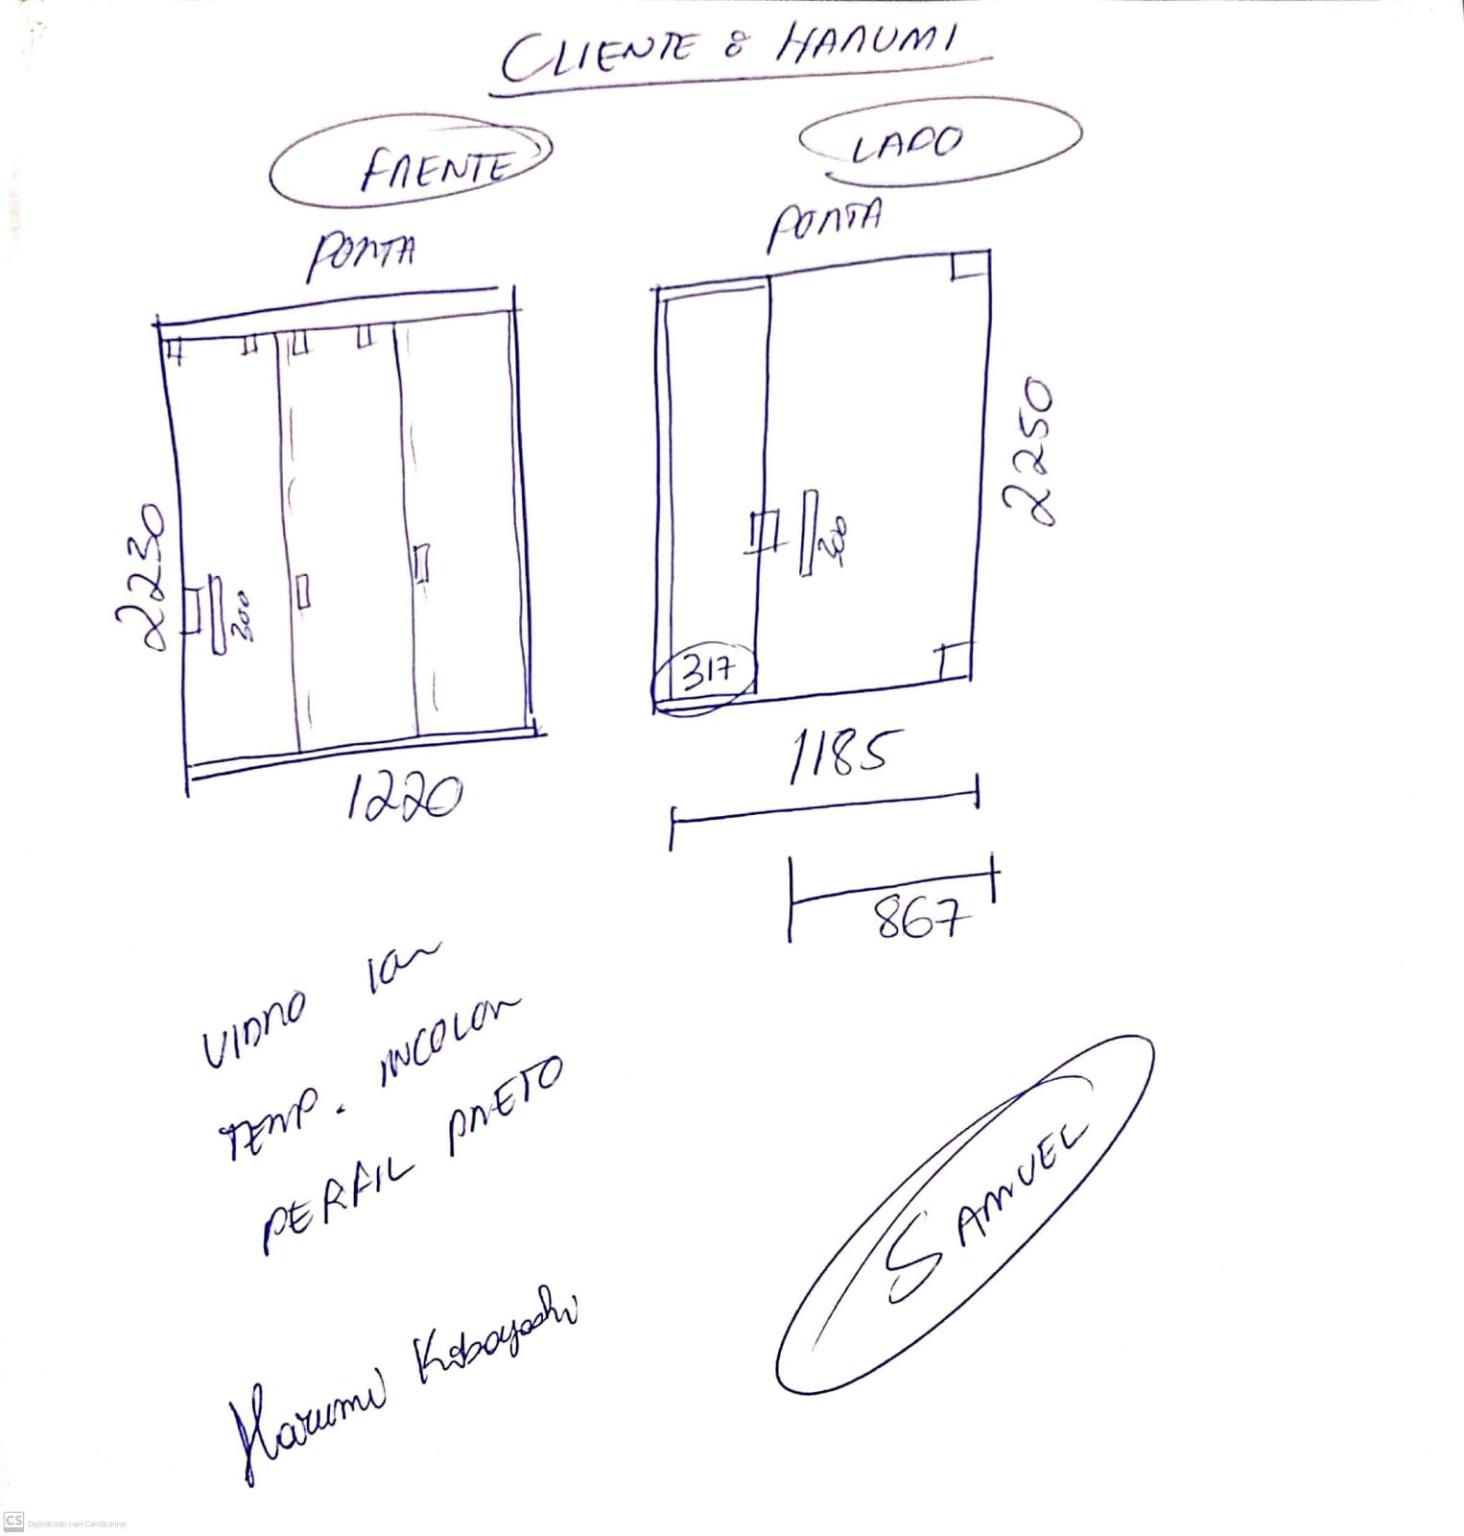 CLIENTE : HARUMI
FRENTE
LADO
PORTA
PORTA
2230
300
1220
2250
300
317
1185
867
VIDRO
TEMP. INCOLOR
PERFIL PRETO
SAMUEL
Harumi Kobayashi
CS Digitalizado com CamScanner